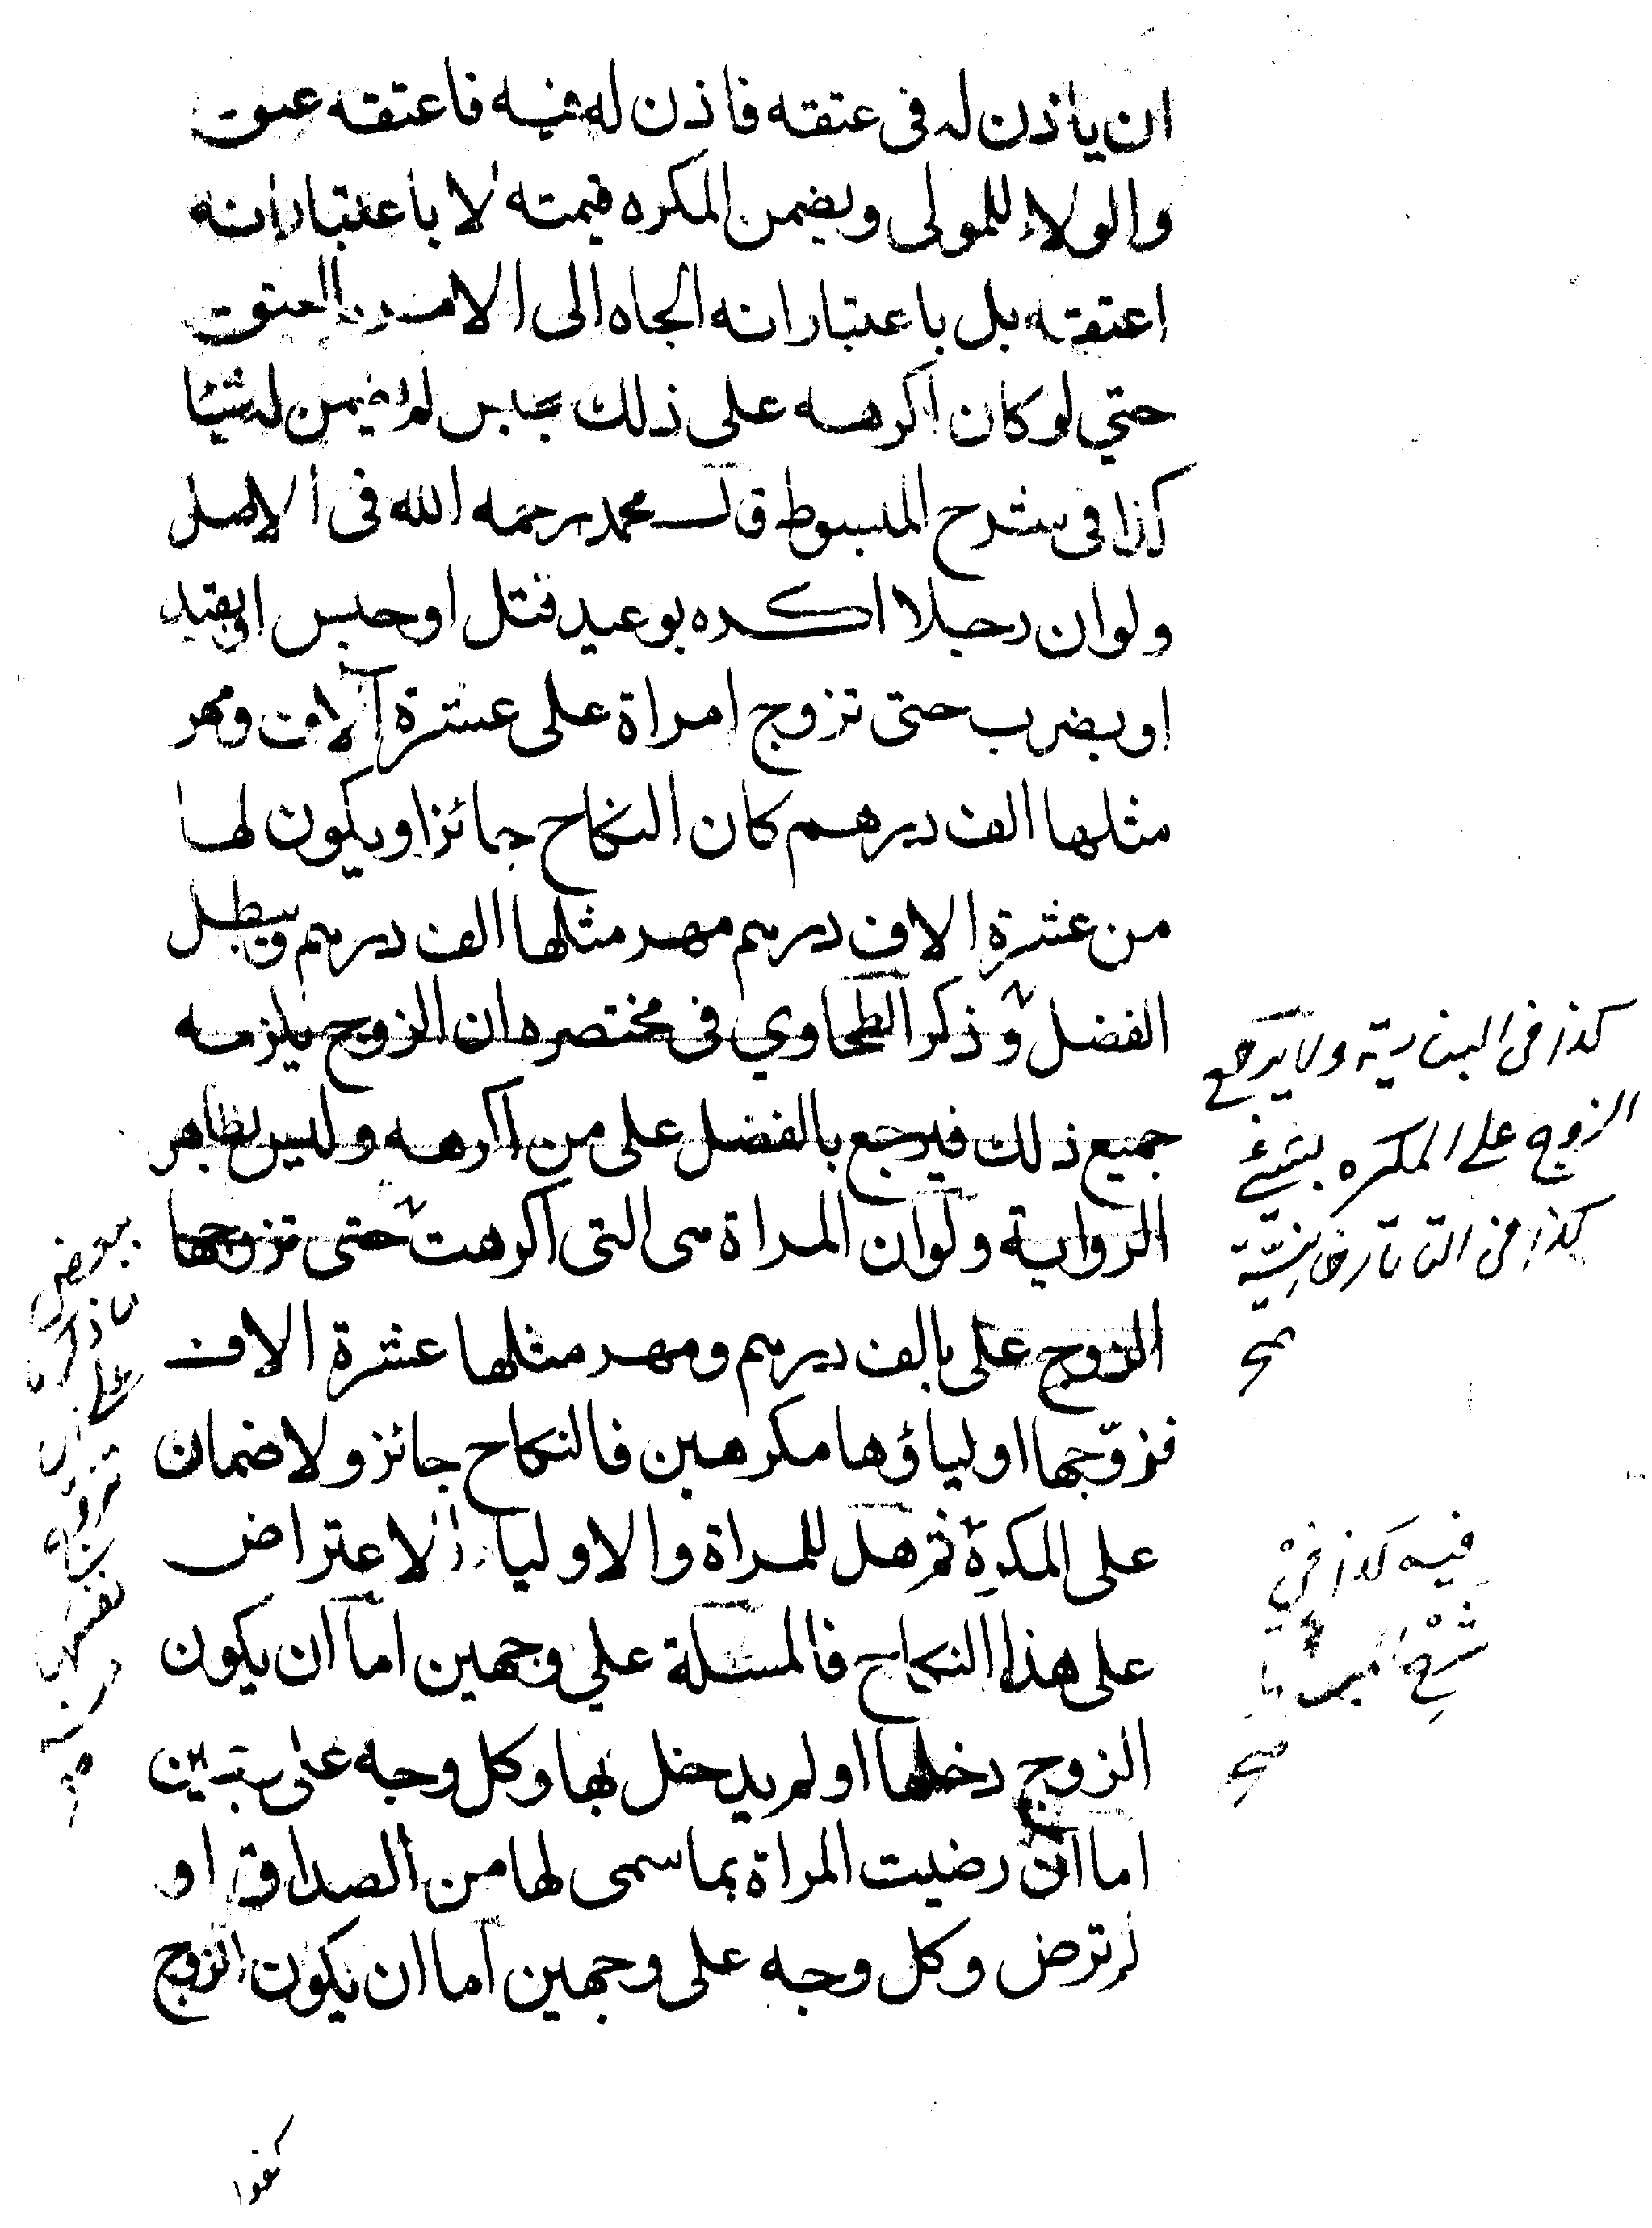 ان ياذن له فى عتقه فاذن له فيه فاعتقه عتق
والولاء للمولى ويضمن المكره قيمته لا باعتبار انه
اعتقه بل باعتبار انه الجاه الى الامر بالعتق
حتي لو كان اكرهه على ذلك بحبس لم يضمن له شيئا
كذا فى شرح المبسوط قال محمد رحمه الله فى الاصل
ولو ان رجلا اكره بوعيد قتل او حبس او بقيد
او بضرب حتى تزوج امراة على عشرة آلاف ومهر
مثلها الف درهم كان النكاح جائزا ويكون لها
من عشرة الاف درهم مهر مثلها الف درهم ويبطل
الفضل وذكر الطحاوي فى مختصره ان الزوج يلزمه
جميع ذلك فيرجع بالفضل على من اكرهه وليس بظاهر
الرواية ولو ان المراة هى التى اكرهت حتى تزوجها
الزوج على بالف درهم ومهر مثلها عشرة الاف
فزوّجها اولياؤها مكرهين فالنكاح جائز ولا ضمان
على المكرِه ثم هل للمراة والاولياء الاعتراض
على هذا النكاح فالمسئلة علي وجهين اما ان يكون
الزوج دخلها او لم يدخل بها وكل وجه على
اما ان رضيت المراة بما سمى لها من الصداق او
لم ترض وكل وجه على وجهين اما ان يكون الزوج
كذا فى الينا ولا يرجع
الزوج على المكره بشيئ
كذا فى التاتارخانيّة
صح
فيه كذا فى
شرح
صح
ببعض
على
تزوج
نفسها
صح
كفوا